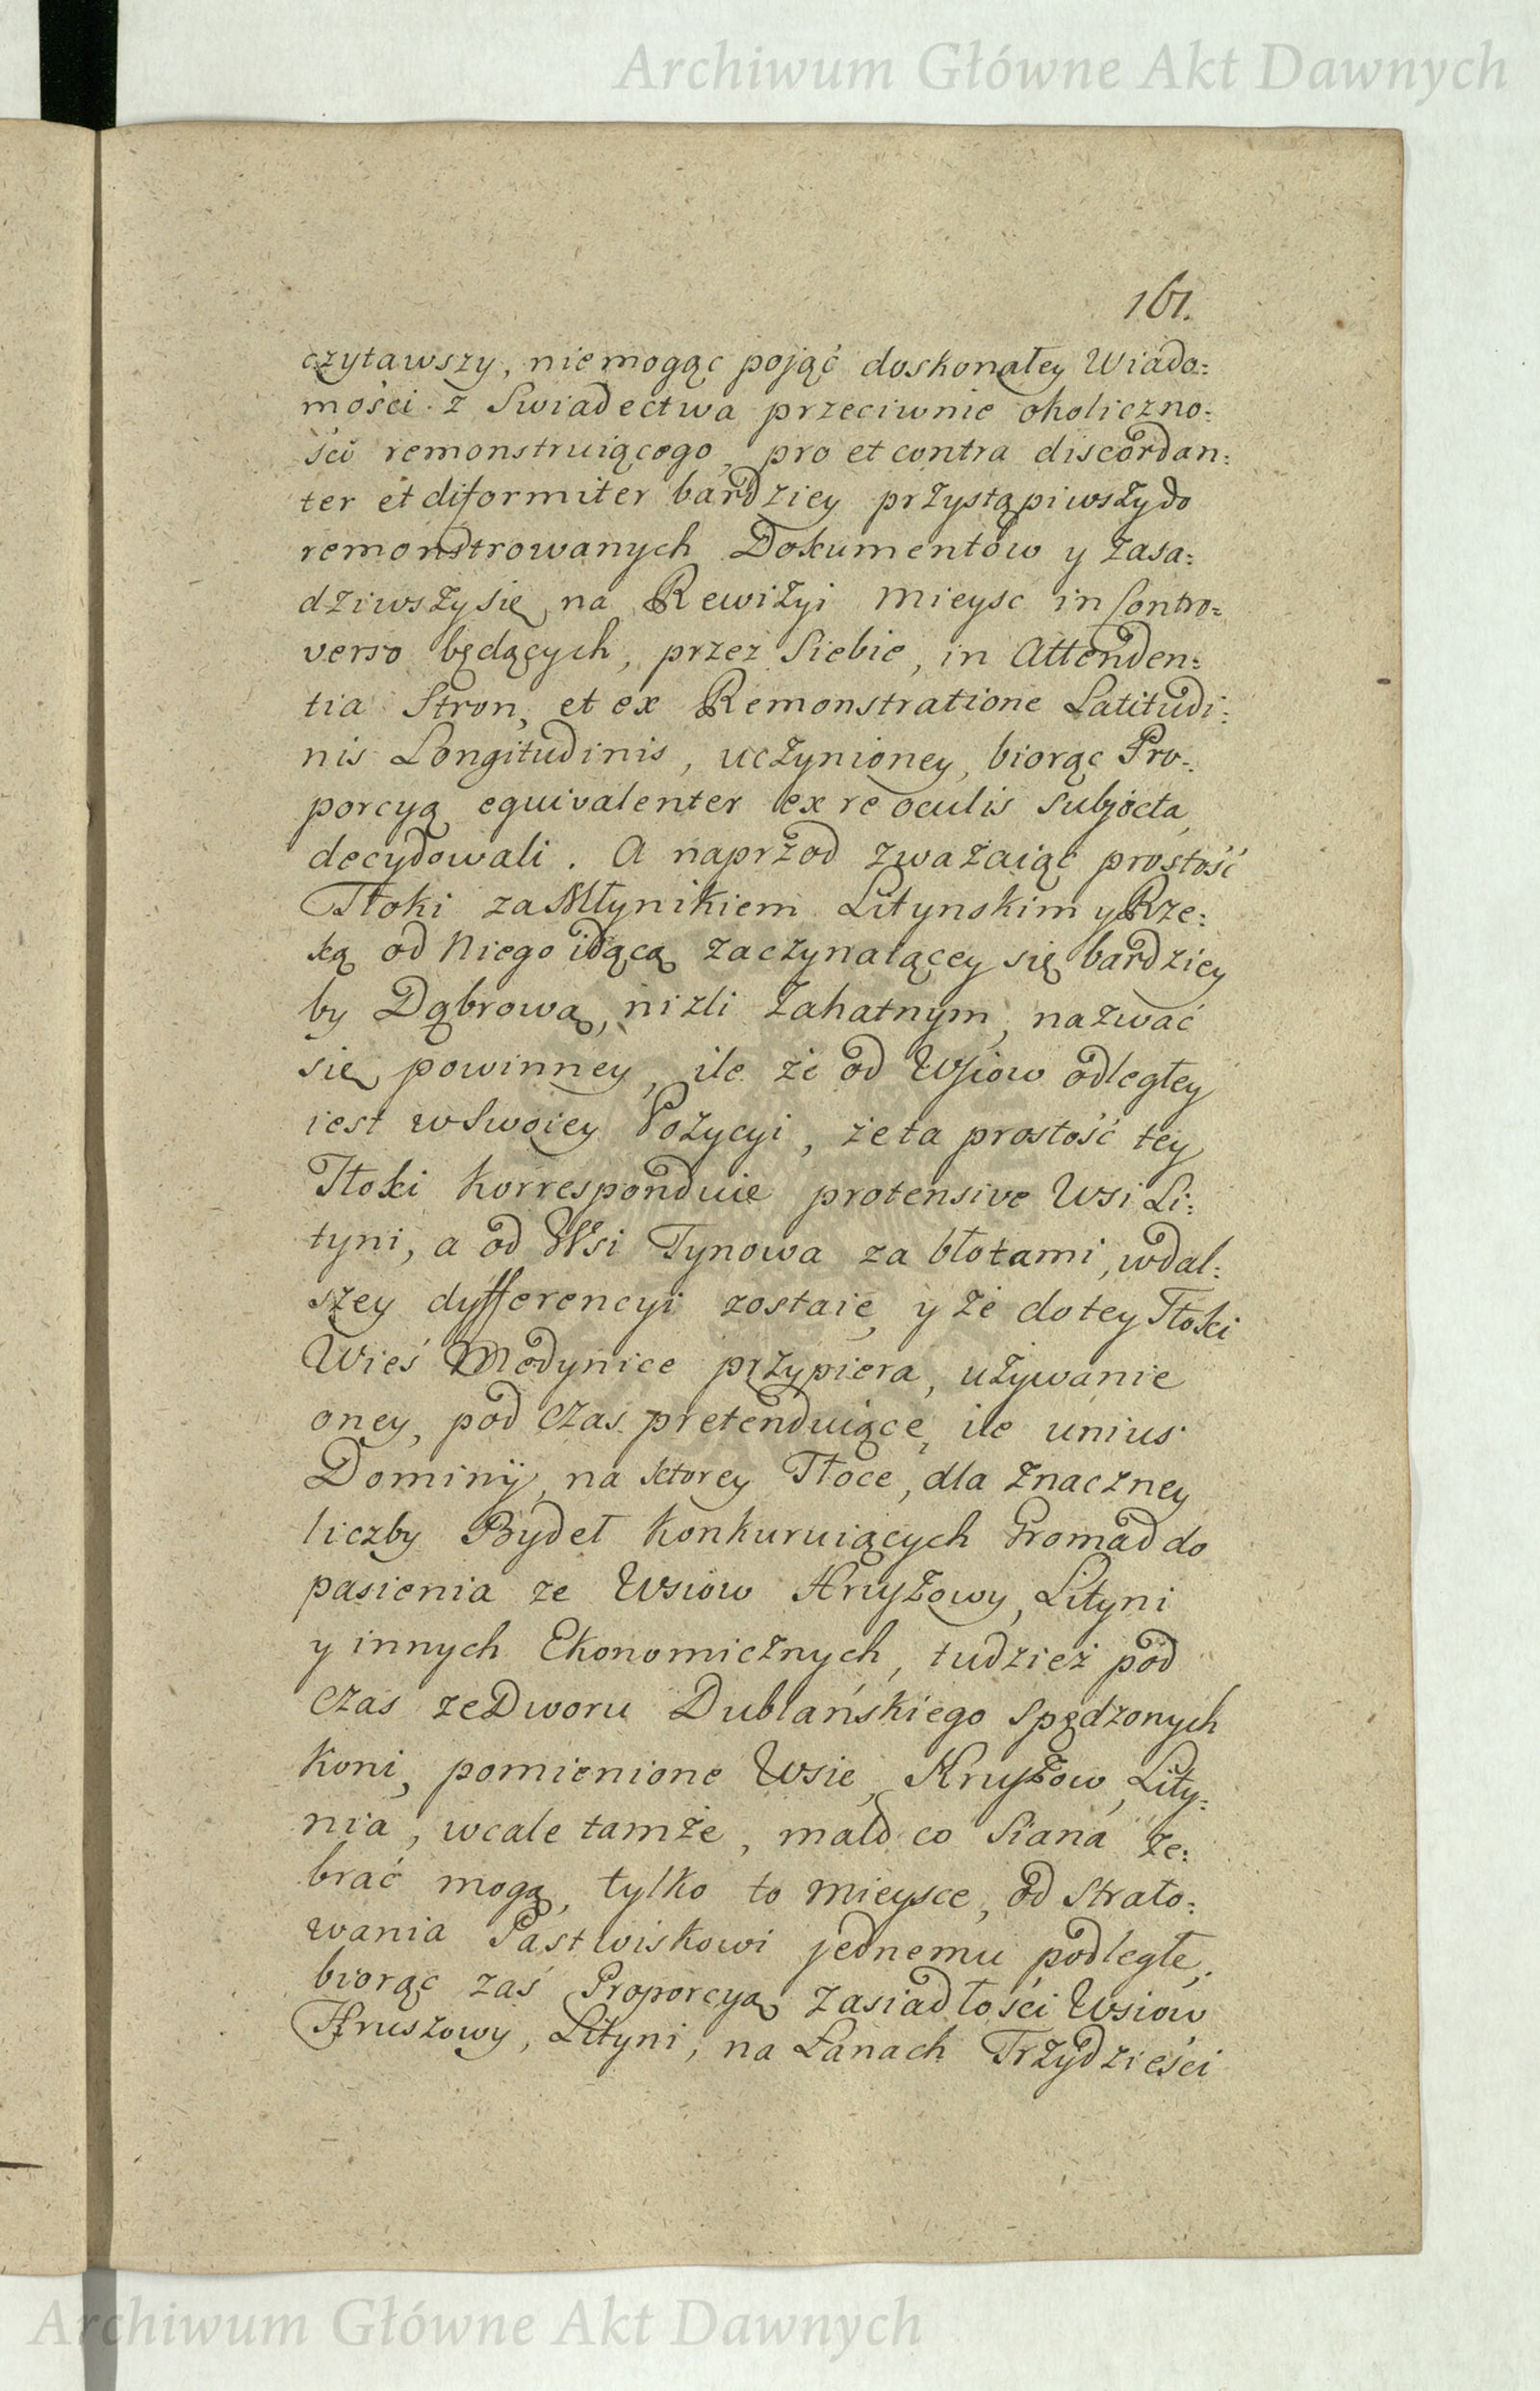 Archiwum Główne Akt Dawnych
161.
czytawszy, niemogąc pojąć doskonałey Wiado:
mości z Swiadectwa przeciwnie okoliczno:
ści remonstruiącego, pro et contra discordan:
ter et difformiter bardziey przystąpiwszy do
remonstrowanych Dokumentow y zasa:
dziwszy się na Rewizyi mieysc in Contro:
verso będących, przez Siebie, in Attenden:
tia Stron, et ex Remonstratione Latitudi:
nis Longitudinis, uczynioney, biorąc Pro:
porcyą equivalenter ex re oculis subjecta,
decydowali. A naprzod zważaiąc prostość
Tłoki za Młynikiem Litynskim y Rze:
ką od Niego idącą zaczynaiącey się bardziey
by Dąbrową, nizli Zahatnym, nazwać
się powinney, ile że od Wsiow odległey
iest w Swoiey Pozycyi, że ta prostość tey
Tłoki korresponduie protensive Wsi Li:
tyni, a od Wsi Tynowa za błotami, w dal:
szey dyfferencyi zostaie, y że do tey Tłoki
Wieś Medynice przypiera, używanie
oney, pod czas pretenduiące, ile unius
Dominij, na ktorey Tłoce, dla znaczney
liczby Bydeł konkuruiących Gromad do
pasienia ze Wsiow Hruszowy, Lityni
y innych Ekonomicznych, tudzież pod
czas ze Dworu Dublańskiego spędzonych
koni, pomienione Wsie, Hruszow, Lity:
nia, wcale tamże, mało co Siana ze:
brać mogą, tylko to mieysce, od Strato:
wania Pastwiskowi jednemu podległe,
biorąc zaś Proporcyą zasiadłości Wsiow
Hruszowy, Lityni, na Łanach Trzydzieści
Archiwum Główne Akt Dawnych